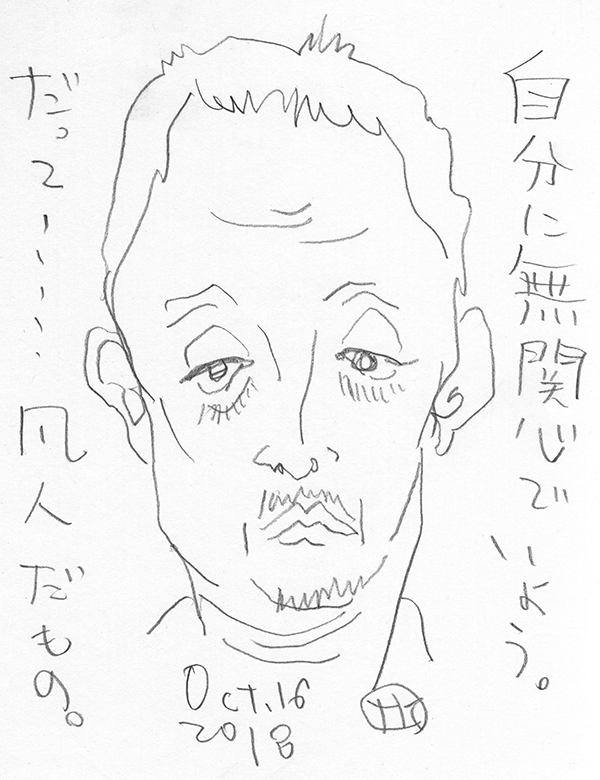 自分に無関心でいよう。
だって……凡人だもの。
Oct.16
2018